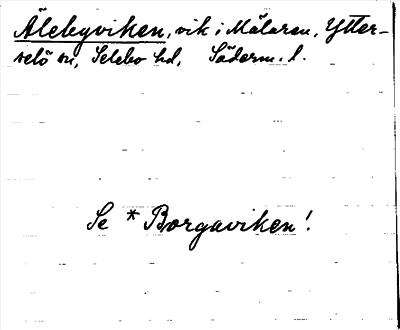 Älebyviken, vik i Mälaren, Ytter-
selö sn, Selebo hd, Söderm. l.
Se * Borgaviken!